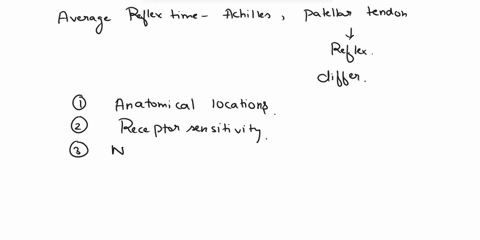 Average Reflex time - Achilles, patellar tendon
↓
Reflex.
differ.
① Anatomical locations.
② Receptor sensitivity.
③ N